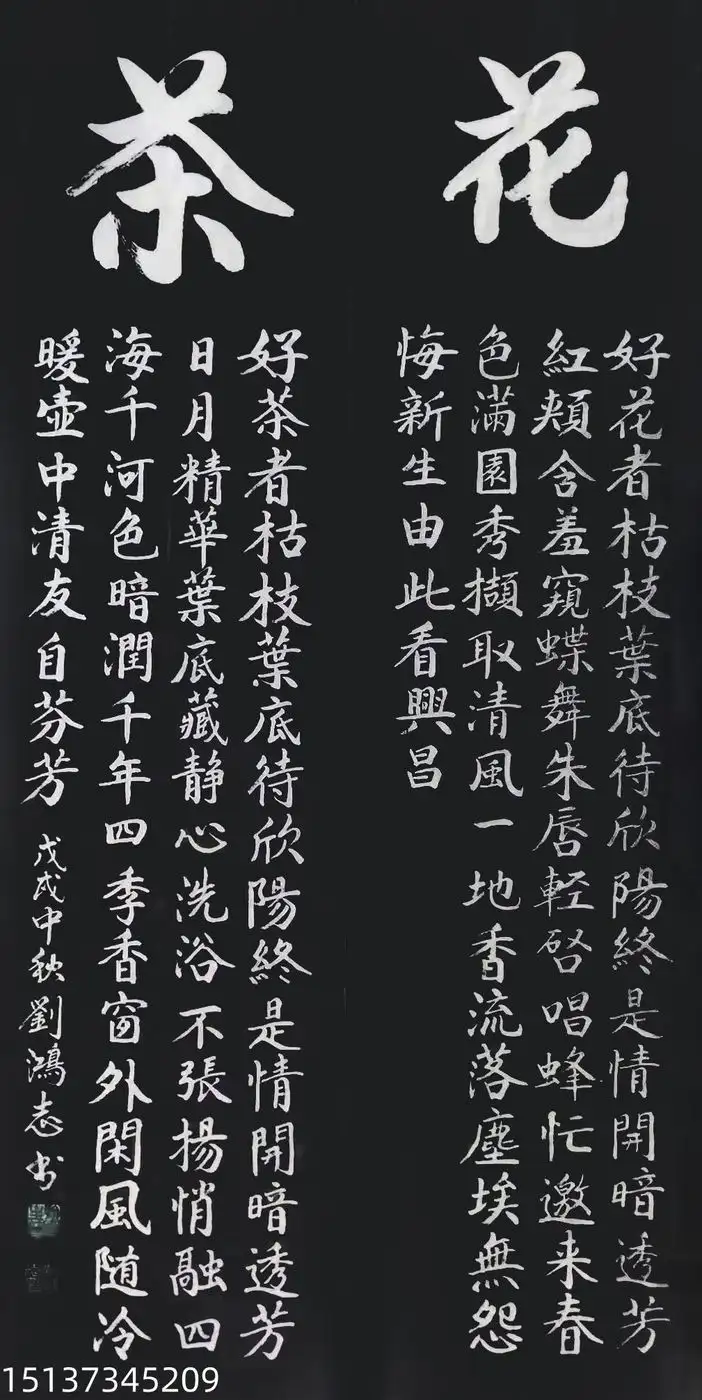 花
好花者枯枝葉底待欣陽終是情開暗透芳
紅頰含羞窺蝶舞朱唇輕啓唱蜂忙邀来春
色滿園秀擷取清風一地香流落塵埃無怨
悔新生由此看興昌
茶
好茶者枯枝葉底待欣陽終是情開暗透芳
日月精華葉底藏静心洗浴不張揚悄融四
海千河色暗潤千年四季香窗外閑風随冷
暖壺中清友自芬芳
戊戌中秋劉鴻志书
15137345209